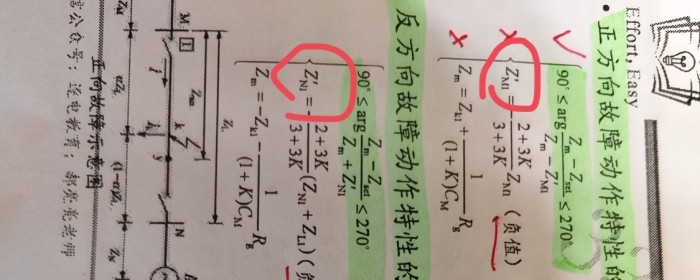 Effort, Easy
• 正方向故障动作特性的
90° ≤ arg (Z_m − Z_set)/(Z_m − Z'_M1) ≤ 270°
Z'_M1 = − (2+3K)/(3+3K) Z_M1 (负值)
Z_m = Z_k1 + 1/((1+K)C_M) R_g
反方向故障动作特性的
90° ≤ arg (Z_m − Z_set)/(Z_m + Z'_N1) ≤ 270°
Z'_N1 = − (2+3K)/(3+3K) (Z_N1 + Z_L1) (负
Z_m = −Z_k1 − 1/((1+K)C_M) R_g
Z_L
M
N
k
y
正向故障示意图
公众号：泾电教育：郝亮亮老师